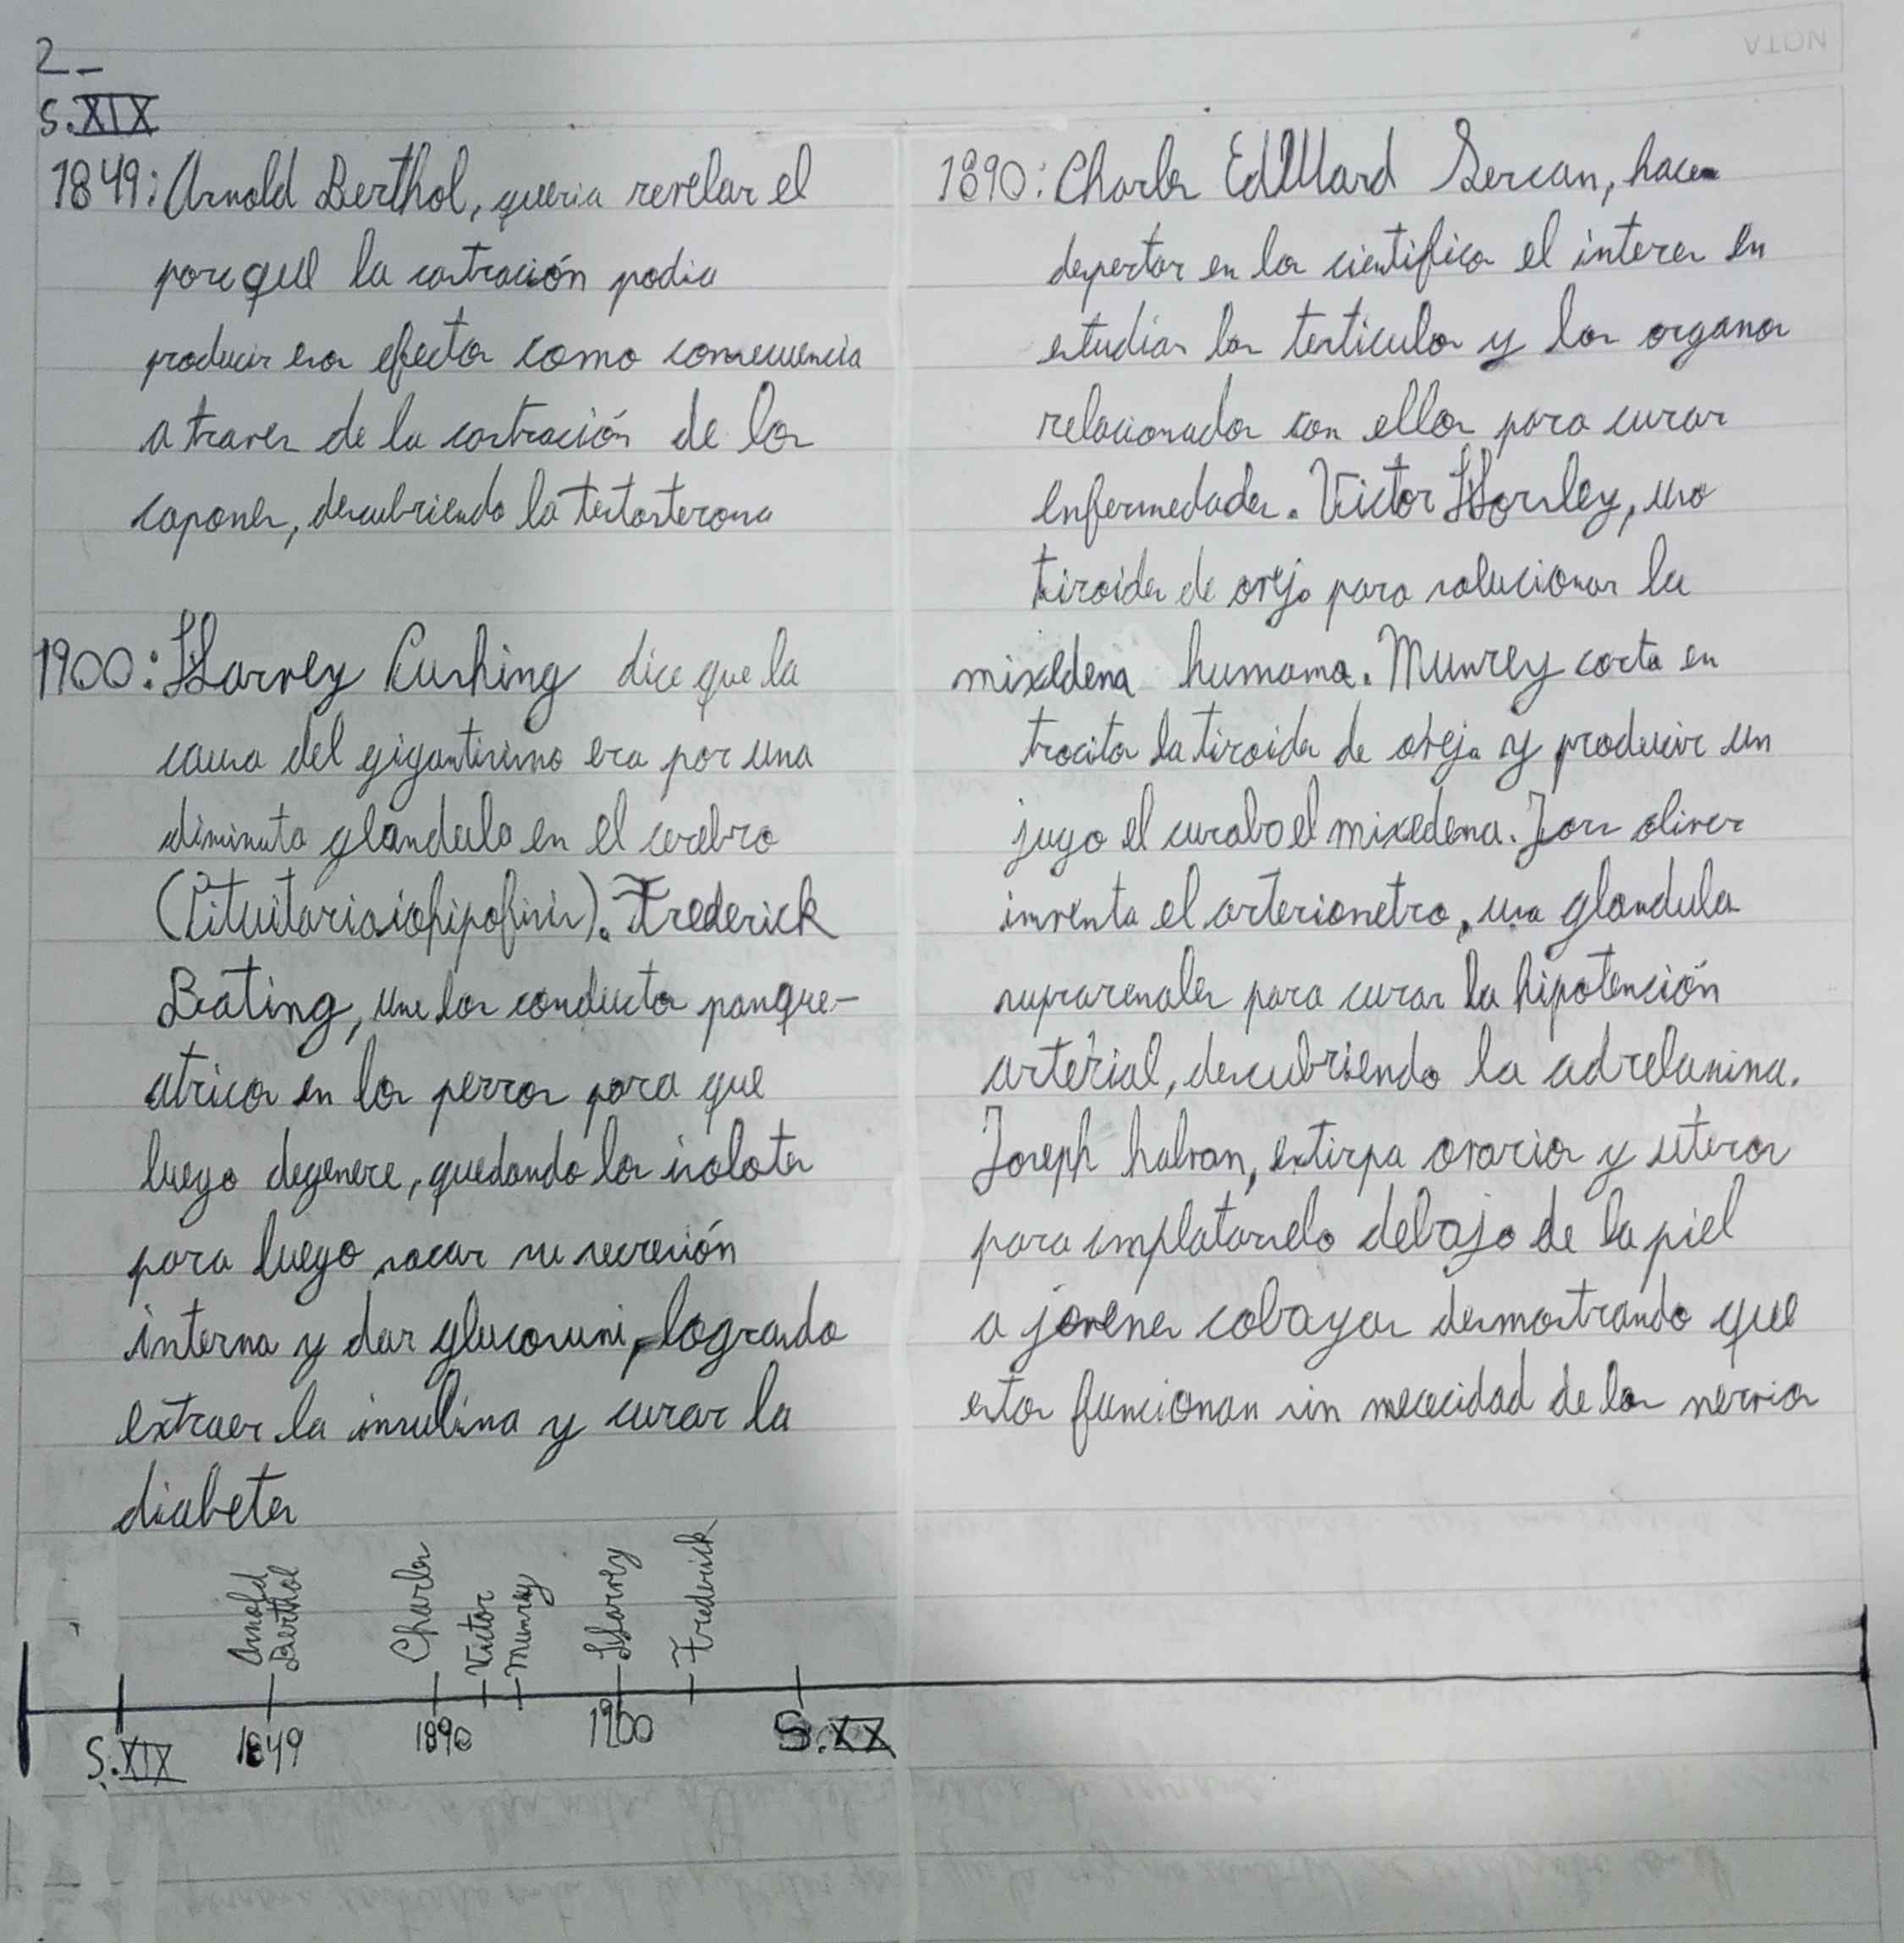 2-
S.XIX
1849: Arnold Berthol, queria revelar el
porque la castración podia
producir esos efectos como consecuencia
a traves de la castración de los
capones, descubriendo la testosterona
1900: Harvey Cushing dice que la
causa del gigantisimo era por una
diminuta glandula en el cerebro
Frederick
Beating, une los conductos panque-
atricos en los perros para que
luego degenere, quedando los islotes
para luego sacar su secresión
interna y dar glucosuni, logrando
extraer la insulina y curar la
diabetes
1890: Charles Edward Sercan, hacen
despertar en los cientificos el interes en
estudiar los testiculos y los organos
relacionados con ellos para curar
enfermedades. Victor Horsley, uso
tiroides de oveja para solucionar la
mixedena humama. Munrey corta en
trocitos la tiroides de oveja y producir un
jugo el curabo el mixedena. Jors oliver
inventa el arterionetro, usa glandula
suprarenales para curar la hipotención
arterial, descubriendo la adrelanina.
Joseph halvan, extirpa ovarios y uteros
para implatarselo debajo de la piel
a jovenes cobayas desmostrando que
estos funcionan sin nececidad de los nervios
Arnold
Berthol
Charles
Victor
Munrey
Harvey
Frederick
S.XIX
1849
1890
1900
S.XX
NOTA